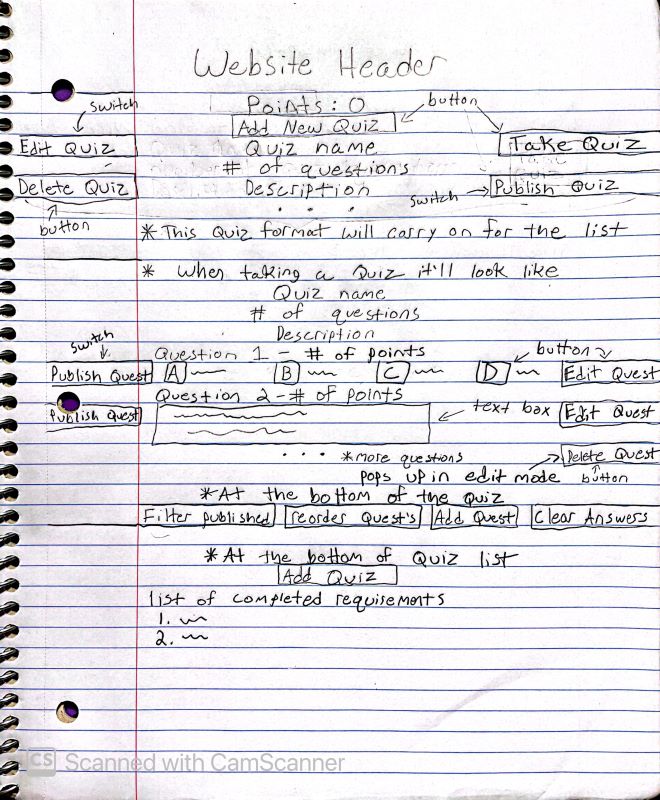 Website Header
switch
Points: 0
button
Add New Quiz
Edit Quiz
Quiz name
Take Quiz
# of questions
Delete Quiz
Description
switch
Publish Quiz
. . .
button
* This Quiz format will carry on for the list
* When taking a Quiz it'll look like
Quiz name
# of questions
Description
switch
Question 1 - # of points
button
Publish Quest
A
B
C
D
Edit Quest
Question 2 - # of points
Publish Quest
text box
Edit Quest
. . . * more questions
Delete Quest
pops up in edit mode
button
* At the bottom of the Quiz
Filter published
reorder Quest's
Add Quest
Clear Answers
* At the bottom of Quiz list
Add Quiz
list of completed requisements
1.
2.
CS Scanned with CamScanner